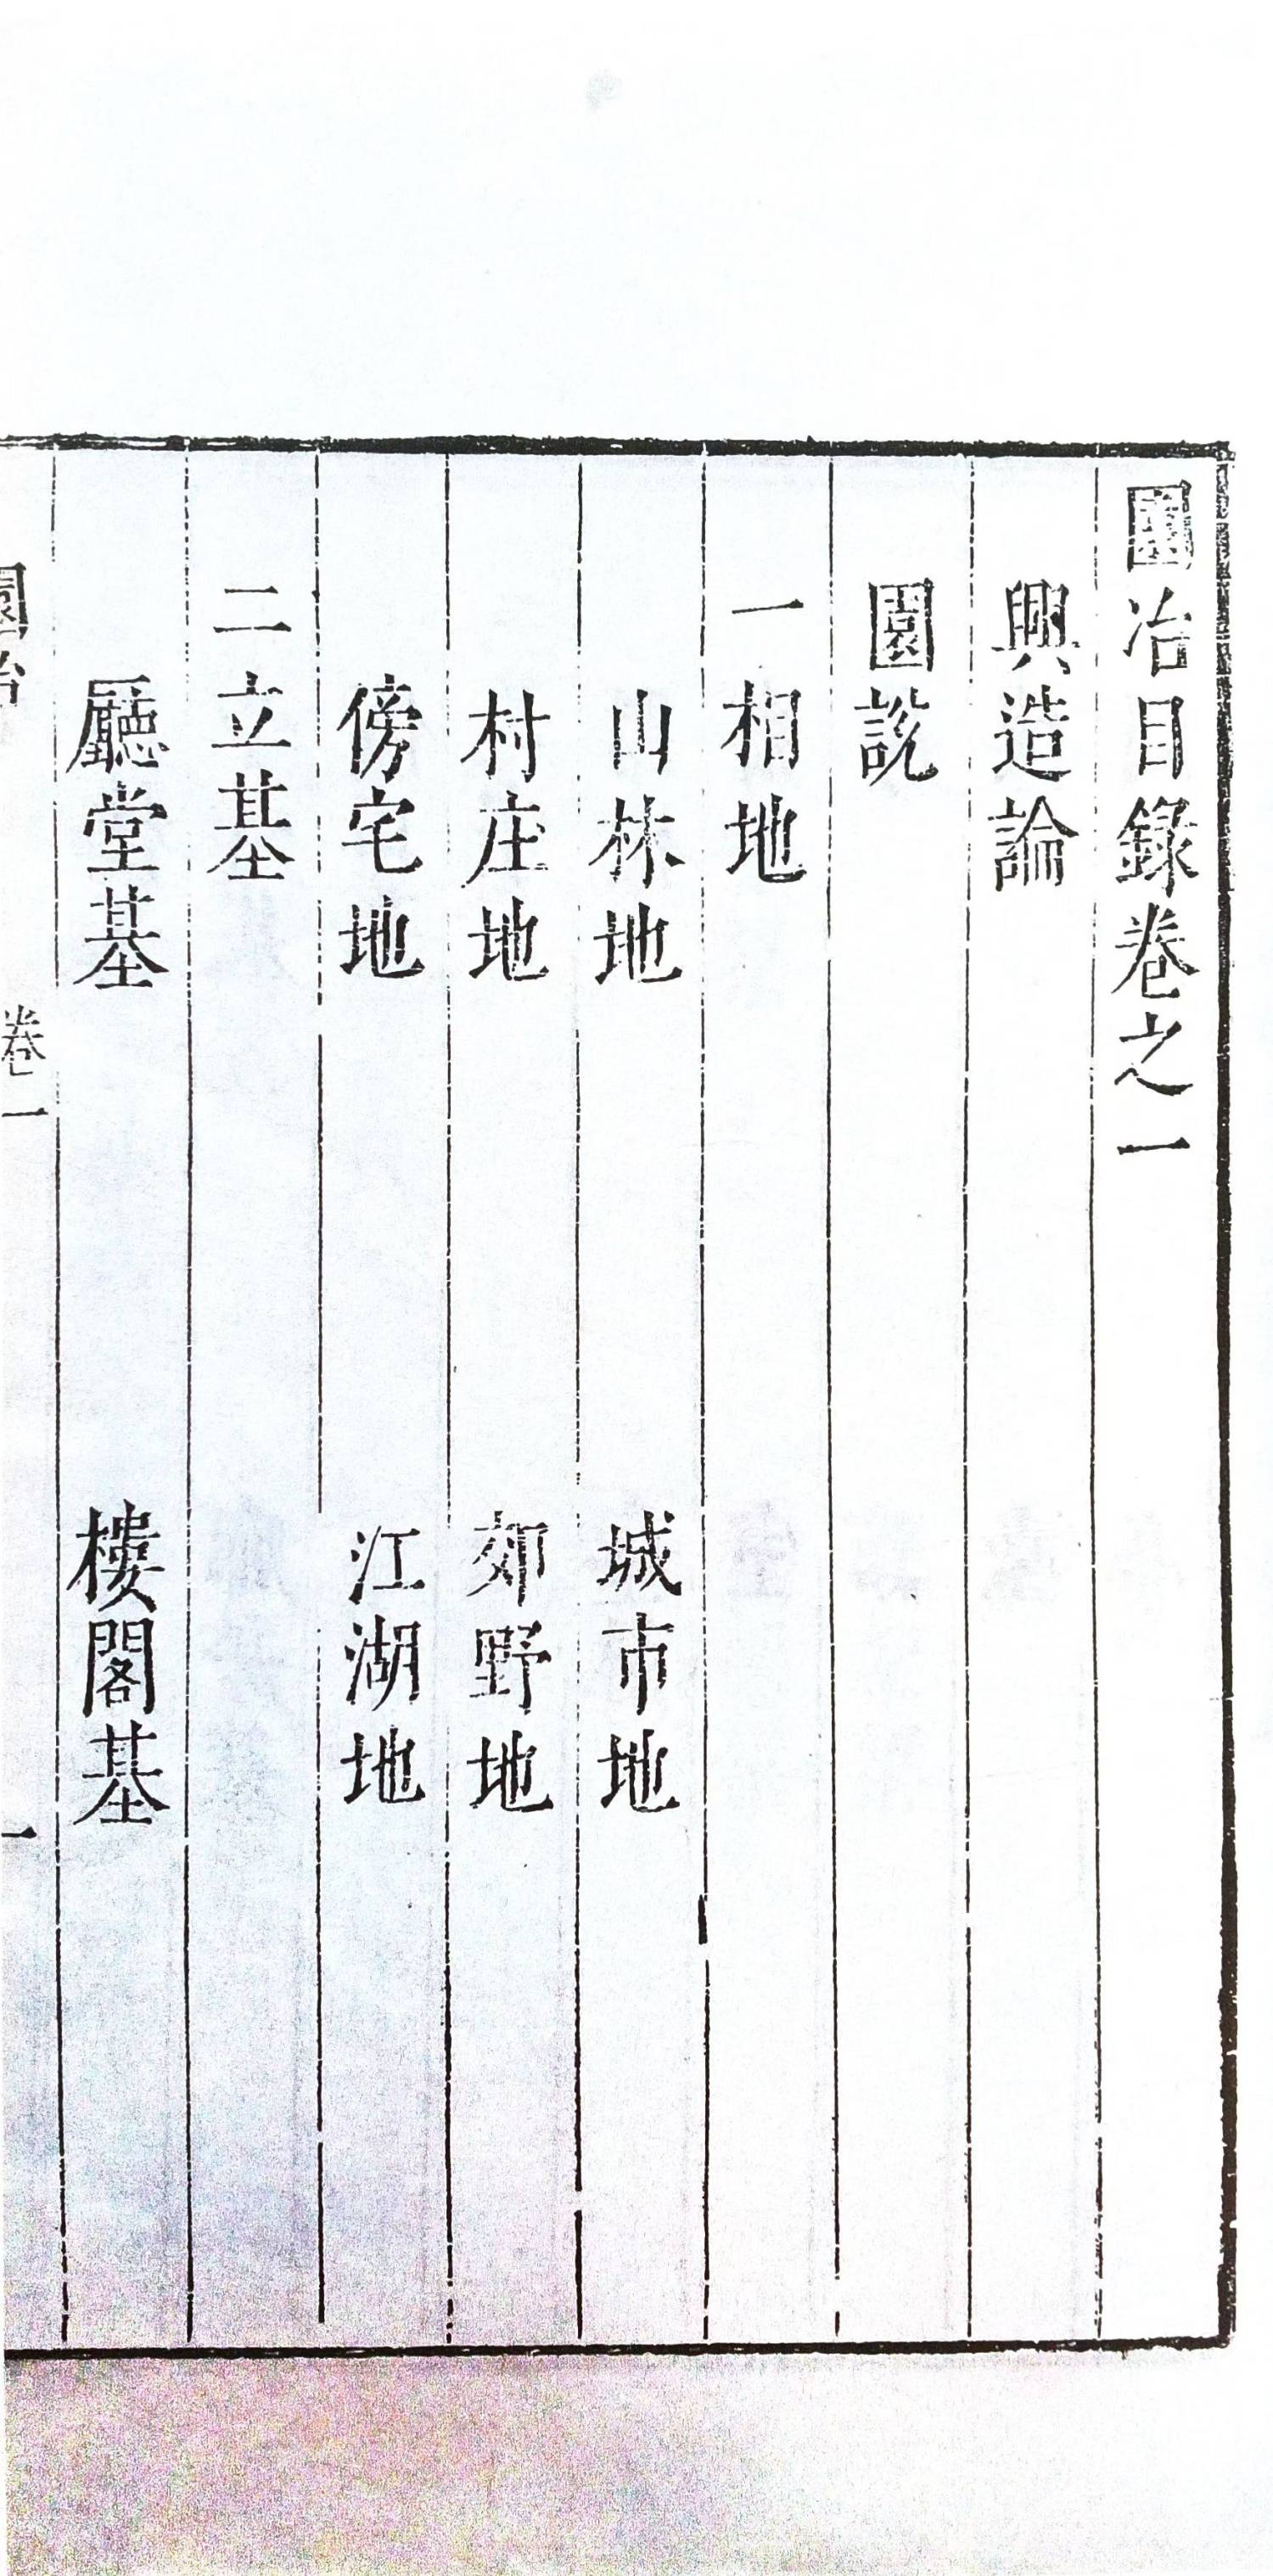 園冶目錄卷之一
興造論
園說
一相地
山林地　城市地
村庄地　郊野地
傍宅地　江湖地
二立基
廳堂基　樓閣基
園冶　卷一　一